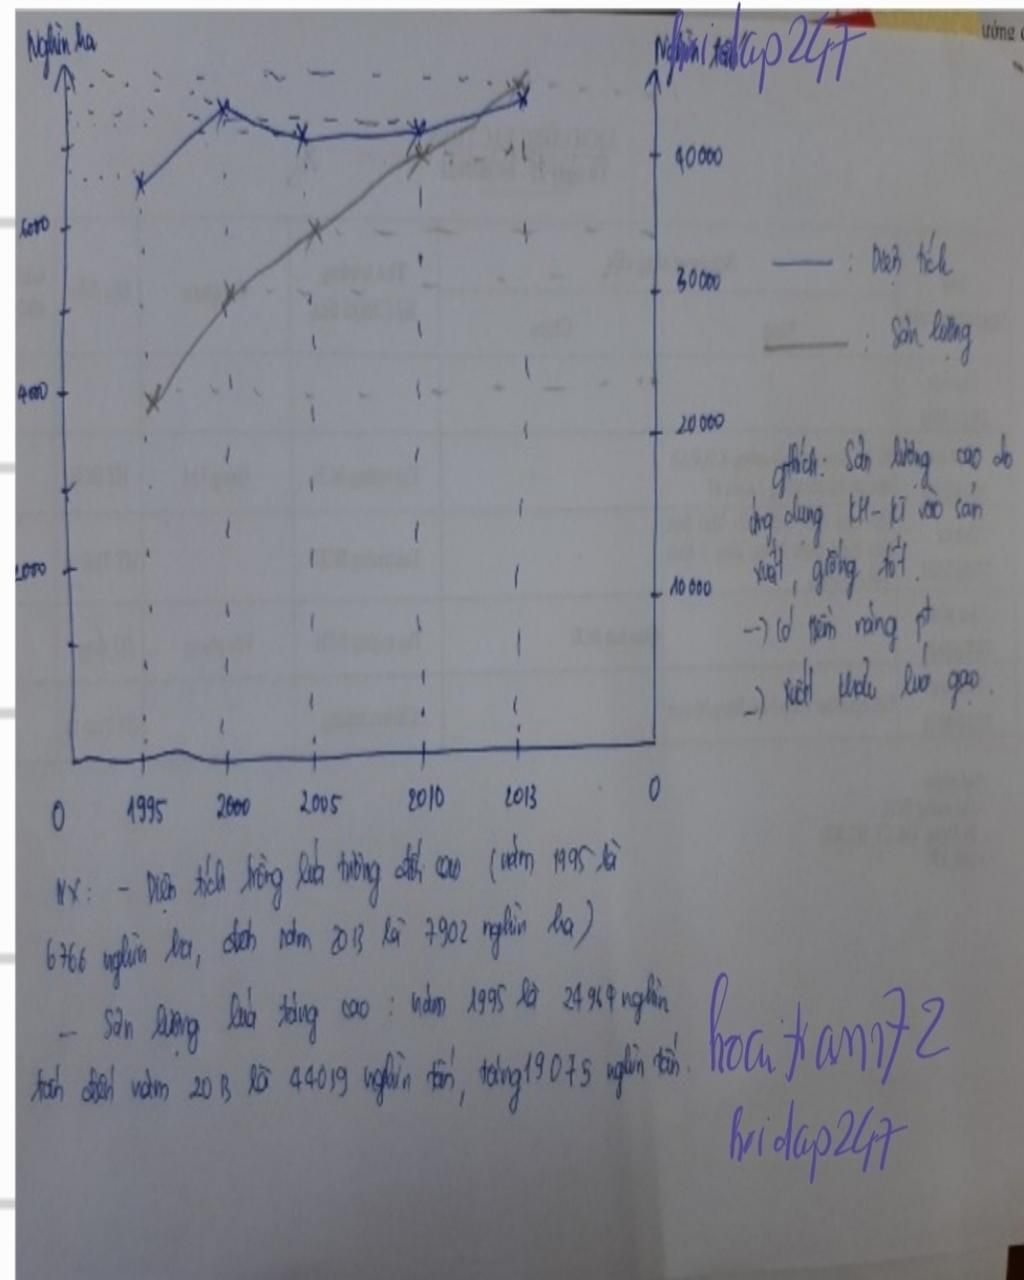 Nghìn ha
Nghìn tấn
hoidap247
ướng
6000
4000
2000
40000
30000
20000
10000
0 1995 2000 2005 2010 2013 0
: Diện tích
: Sản lượng
gthích: Sản lượng cao do
ứng dụng KH-KT vào sản
xuất, giống tốt.
→ có tiềm năng pt
→ xuất khẩu lúa gạo.
NX: - Diện tích trồng lúa tương đối cao (năm 1995 là
6766 nghìn ha, đến năm 2013 là 7902 nghìn ha)
- Sản lượng lúa tăng cao: năm 1995 là 24964 nghìn
tấn đến năm 2013 là 44039 nghìn tấn, tăng 19075 nghìn tấn.
hoaitram72
hoidap247